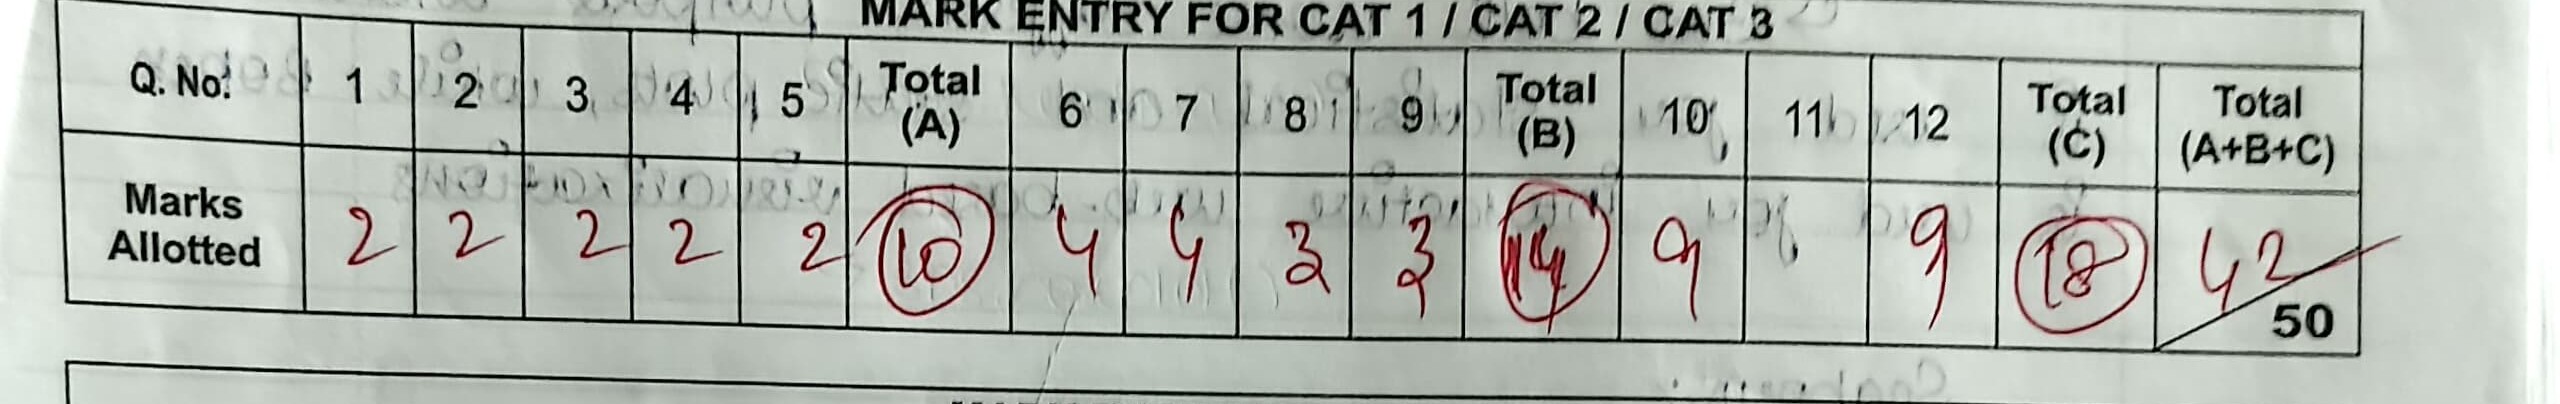 MARK ENTRY FOR CAT 1 / CAT 2 / CAT 3
Q. No. 1 2 3 4 5 Total (A) 6 7 8 9 Total (B) 10 11 12 Total (C) Total (A+B+C)
Marks Allotted 2 2 2 2 2 10 4 4 3 3 14 9 9 18 42/50